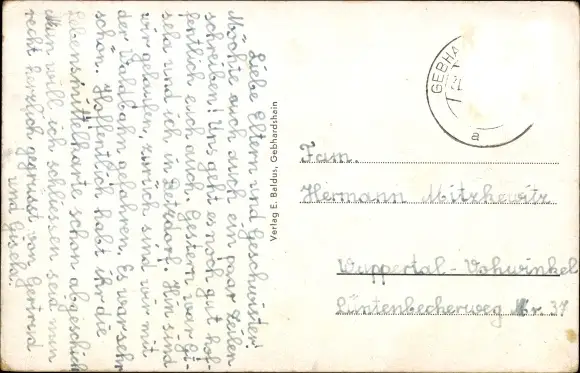 Liebe Eltern und Geschwister!
Möchte auch auch ein paar Zeilen
schreiben! Uns geht es noch gut hof-
fentlich euch auch. Gestern war Gi-
sela und ich in Betzdorf. Hin sind
wir gelaufen, zurück sind wir mit
der Waldbahn gefahren. Es war sehr
schön. Hoffentlich habt ihr die
Lebensmittelkarte schon abgeschickt
Nun will ich schliessen seid nun
recht herzlich gegrüsst von Gertrud
und Gisela.
Verlag E. Baldus, Gebhardshain
GEBHA
a
Fam.
Hermann Mitzkewitz
Wuppertal-Vohwinkel
Lüntenbeckerweg Nr. 37